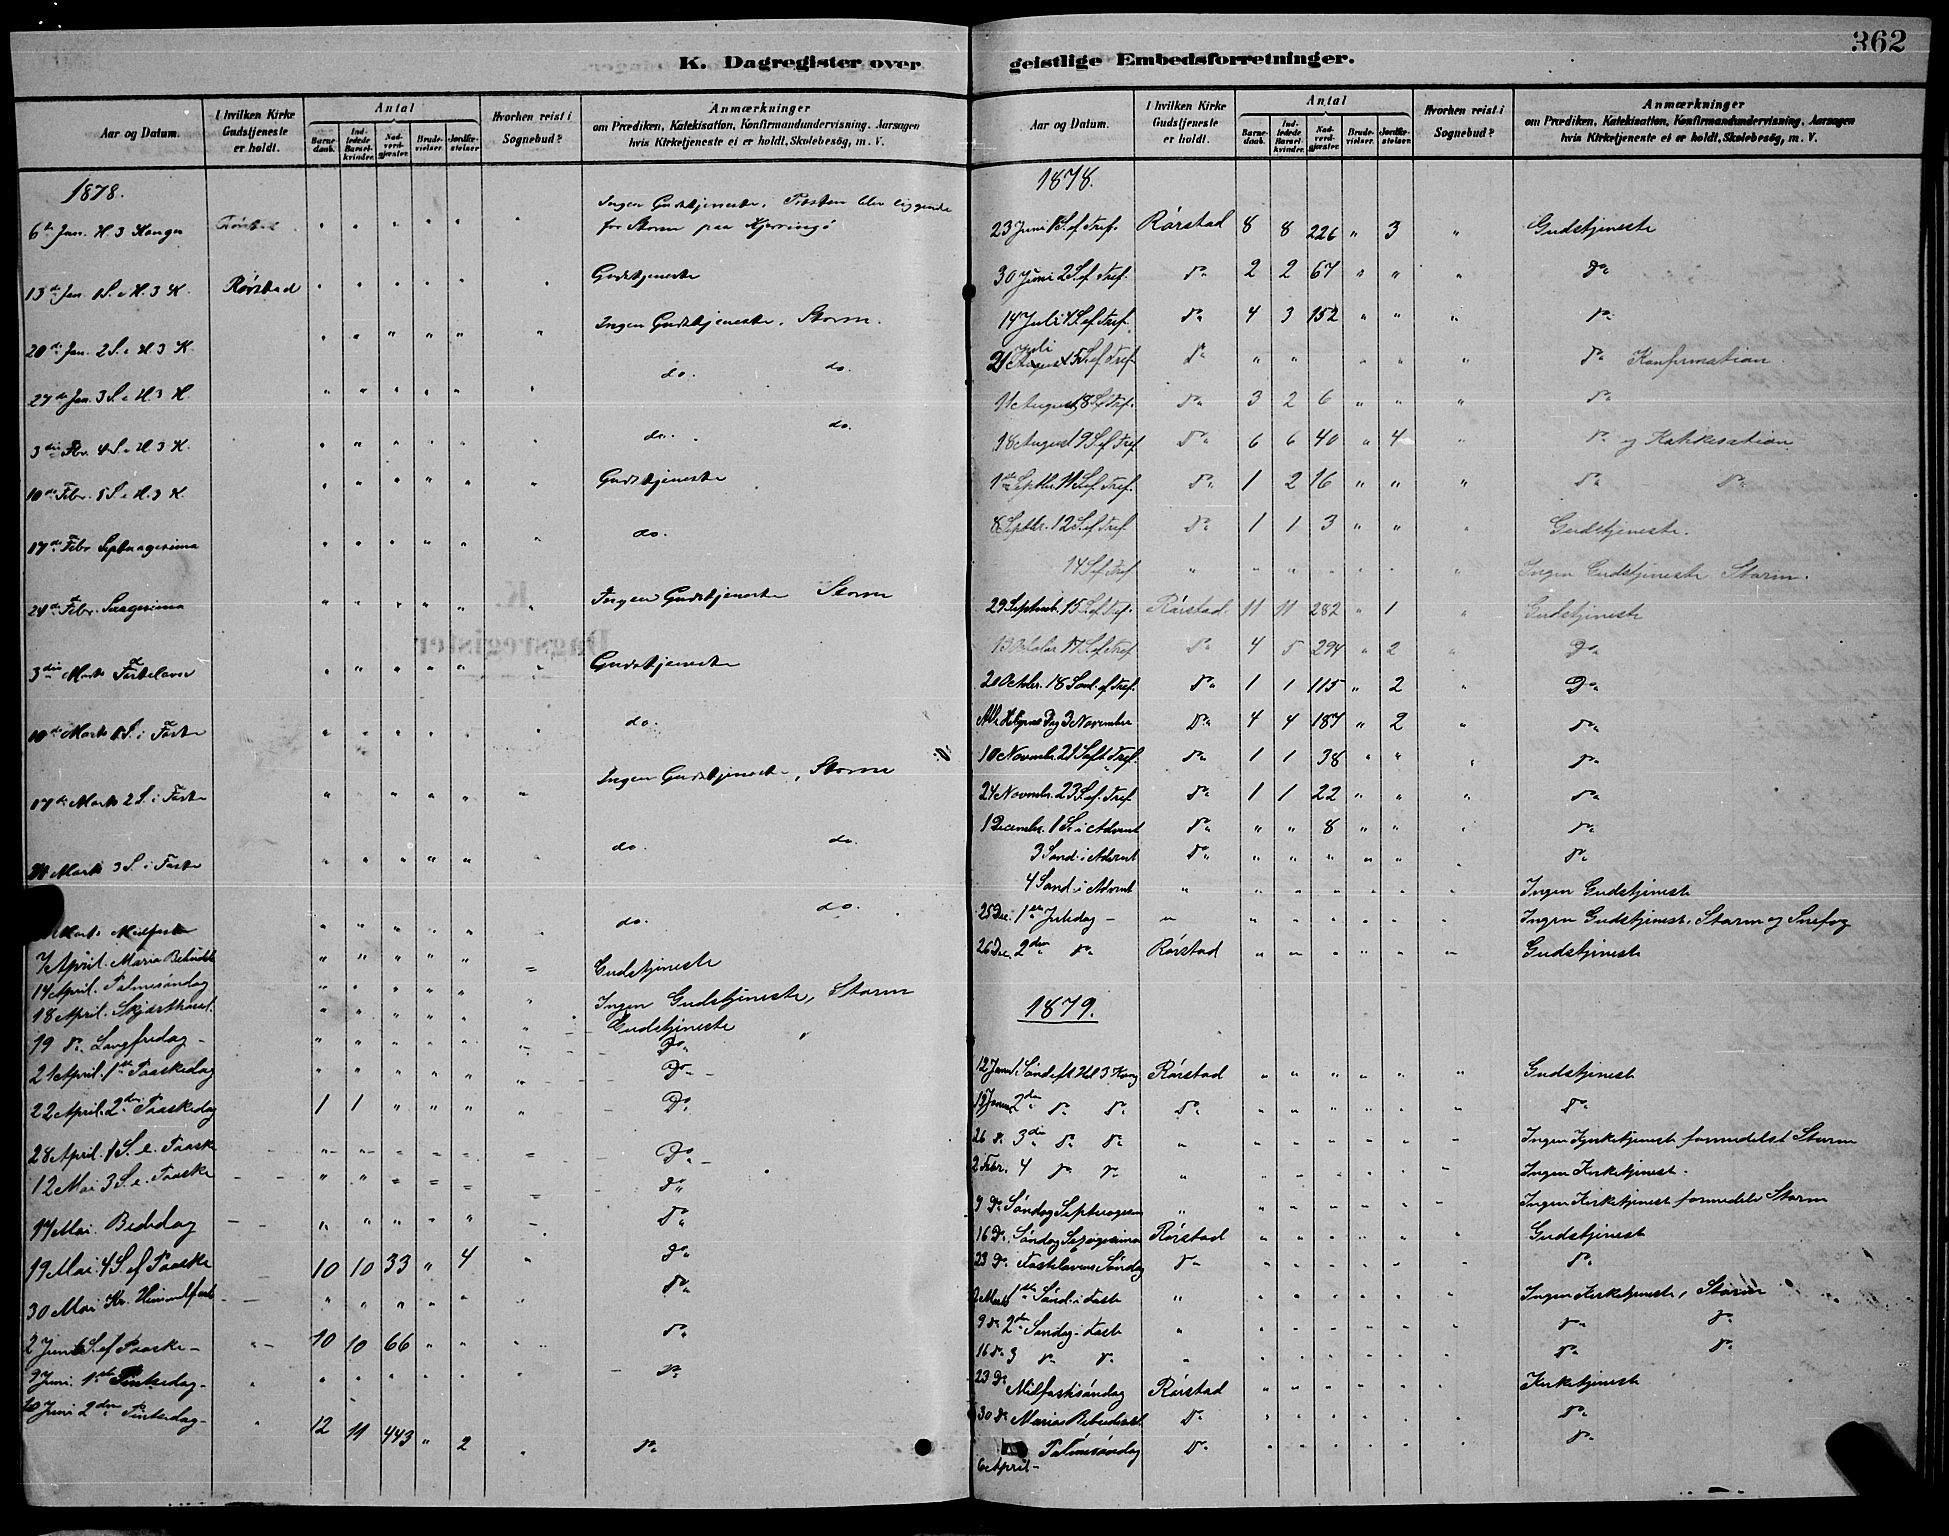 362
K. Dagregister over geistlige Embedsforretninger.
Aar og Datum.
I hvilken Kirke Gudstjeneste er holdt.
Antal
Barnedaab.
Indledede Barselkvinder.
Nadverdgjæster.
Brudevielser.
Jordfæstelser.
Hvorhen reist i Sognebud?
Anmærkninger
om Prædiken, Katekisation, Konfirmandundervisning. Aarsagen
hvis Kirketjeneste ei er holdt, Skolebesög, m. V.
1878.
6te Jan. H. 3 Konger " " " " " " Ingen Gudstjeneste, Presten blev liggende
for Storm paa Kjerringö
13de Jan. 1 S. e. H. 3 K. Rörstad " " " " " " Gudstjeneste
20de Jan. 2 S. e. H. 3 K. " " " " " " Ingen Gudstjeneste, Storm.
27de Jan. 3 S. e. H. 3 K. " " " " " " do. do.
3die Febr. 4 S. e. H. 3 K. " " " " " do. do.
10de Febr. 5 S. e. H. 3 K. " " " " " " Gudstjeneste
17de Febr. Septuagesima " " " " " " do.
24de Febr. Sexagesima " " " " " " Ingen Gudstjeneste Storm
3die Marts Fastelavn " " " " " " Gudstjeneste
10de Marts 1 S. i Faste " " " " " " do.
17de Marts 2 S. i Faste " " " " " Ingen Gudstjeneste, Storm
Marts 3 S. i Faste " " " " " " do. do.
Marts Midfaste " " " " " " do. do.
7 April. Maria Bebudelse " " " " " " Gudstjeneste
14 April. Palmesöndag " " " " " " Ingen Gudstjeneste, Storm
18 April. Skjærthorsd. " " " " " " Gudstjeneste
19 do Langfredag - " " " " " " Do
21 April. 1ste Paaskedag " " " " " " Do
22 April. 2den Paaskedag 1 1 " " " " Do
28 April. 1 S. e. Paaske " " " " " " Do
12 Mai 3 S. e. Paaske " " " " " " do
17 Mai Bededag " " " " " " do
19 Mai. 4 S. ef Paaske 10 10 33 " 4 " do
30 Mai Kr. Himmelfart " " " " " " do
2 Juni 6 S. ef Paaske - 10 10 66 " " " do
9 Juni. 1ste Pintsedag - " " " " " " do
10 Juni 2den Pintsedag - 12 11 443 " 2 " do
Aar og Datum.
I hvilken Kirke Gudstjeneste er holdt.
Antal
Barnedaab.
Indledede Barselkvinder.
Nadverdgjæster.
Brudevielser.
Jordfæstelser.
Hvorhen reist i Sognebud?
Anmærkninger
om Prædiken, Katekisation, Konfirmandundervisning, Aarsagen
hvis Kirketjeneste ei er holdt, Skolebesög, m. V.
1878.
23 Juni 1 S. ef Tref. Rörstad 8 8 226 " 3 " Gudstjeneste
30 Juni 2 S. ef Tref. do 2 2 67 " " " do
14 Juli 4 S. ef Tref. do 4 3 152 " " " do
21 Juli 5 S. ef Tref. do " " " " " do Konfirmation
11 August 8 S. ef Tref. do 3 2 6 " " " do
18 August 9 S. ef Tref do 6 6 40 " 4 " do og Katekisation
1ste Septbr. 11 S. ef. Tref. do 1 2 16 " " " do do
8 Septbr. 12 S. ef Tref. do 1 1 3 " " " Gudstjeneste.
14 S. ef Tref " " " " " " " Ingen Gudstjeneste Storm.
29 Septemb. 15 S. ef Tref. Rörstad. 11 11 282 " 1 " Gudstjeneste
13 October 17 S. ef Tref do 4 5 294 " 2 " Do
20 Octobr. 18 Sönd. ef Tref. do 1 1 115 " 2 " Do
Alle Helgens Dag 3 November do 4 4 187 " 2 " do
10 Novembr. 21 S. eft Tref. do 1 1 38 " " " do
24 Novembr. 23 S. ef. Tref do 1 1 22 " " " do
1 December. 1 S. i Advent do " " 8 " " " do
3 Sönd. i Advent do " " " " " " do
4 Sönd. i Advent " " " " " " " Ingen Gudstjeneste
25 Dec. 1ste Juledag - " " " " " " " Ingen Gudstjeneste. Storm og Snefog
26 Dec. 2den do Rörstad " " " " " " Gudstjeneste
1879.
12 Janu. 1 Sönd eft. Hel. 3 Kong Rörstad " " " " " " Gudstjeneste
19 Januar 2den do do do " " " " " " do
26 do 3die do do " " " " " " " Ingen Kirketjeneste formedelst Storm
2 Febr. 4 do do " " " " " " " Ingen Kirketjeneste.
9 Do Söndag Septuagesim " " " " " " " Ingen Kirketjeneste formedels Storm
16 Do. Söndag Sexagesima Rörstad " " " " " " Gudstjeneste
23 Do Fastelavens Söndag do " " " " " " do
2 Marts 1ste Sönd. i Faste " " " " " " " Ingen Kirketjeneste, Storm
9 do 2de Söndag i Faste " " " " " " " do do
16 do 3 do do " " " " " " " do do
23 Do Midfastesöndag Rörstad " " " " " " Kirketjeneste
30 do Marias Bebudelse do " " " " " " do
6 April - Palmesöndag do " " " " " " do